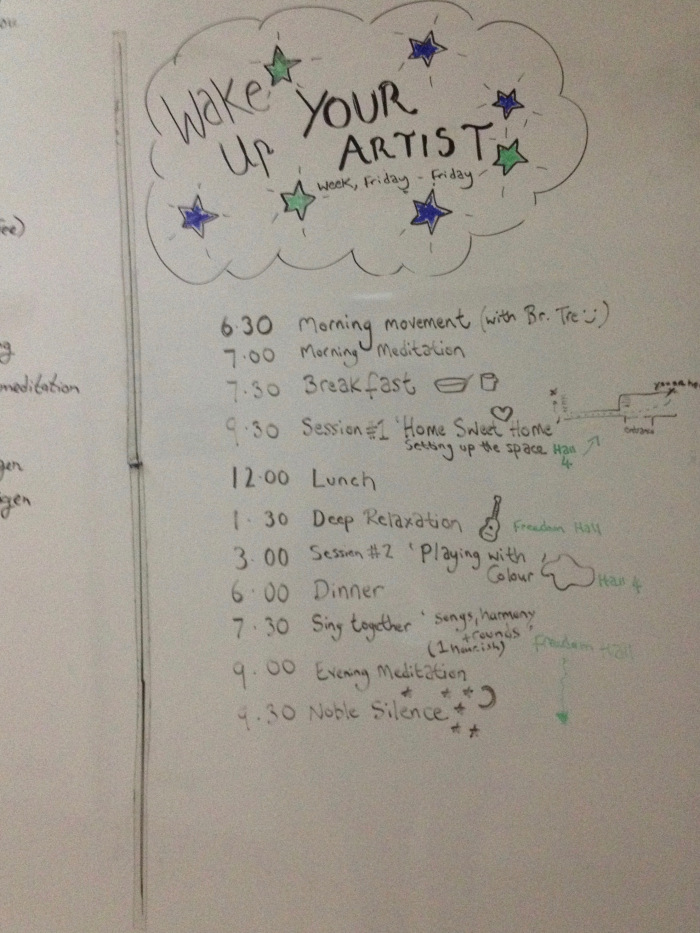 Wake
Up
YOUR
ARTIST
Week, Friday - Friday
6.30 Morning movement (with Br. Tre :))
7.00 Morning Meditation
7.30 Breakfast
9.30 Session #1 'Home Sweet Home'
Setting up the space Hall 4
x
you are here
x
Entrance
12.00 Lunch
1.30 Deep Relaxation Freedom Hall
3.00 Session #2 'Playing with
Colour' Hall 4
6.00 Dinner
7.30 Sing together 'songs, harmony
+ rounds'
(1 hour ish) Freedom Hall
9.00 Evening Meditation
9.30 Noble Silence
meditation